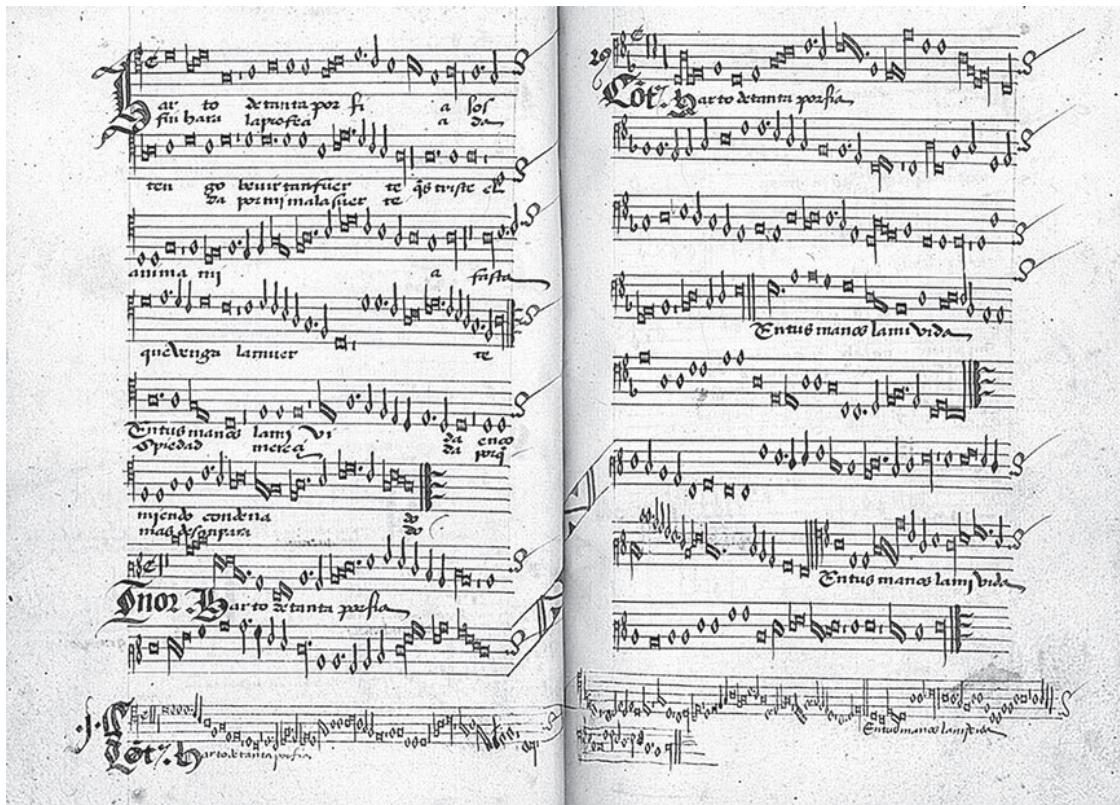 Har to detanta por fi a sos
fin hara laprofea a da
ten go beuir tan fuer te q̃s triste el
da por mi mala suer te
anima mi a fasta
que venga lamuer te
En tus manos lami vi da enco
piedad mereci da porq̃
miendo condena do
mas desanpara do
Tenor Harto detanta porfia
Cõtᵃ. Harto detanta porfia
29
Cõtᵃ. Harto detanta porfia
En tus manos lami vida
En tus manos lami vida
En tus manos lami vida